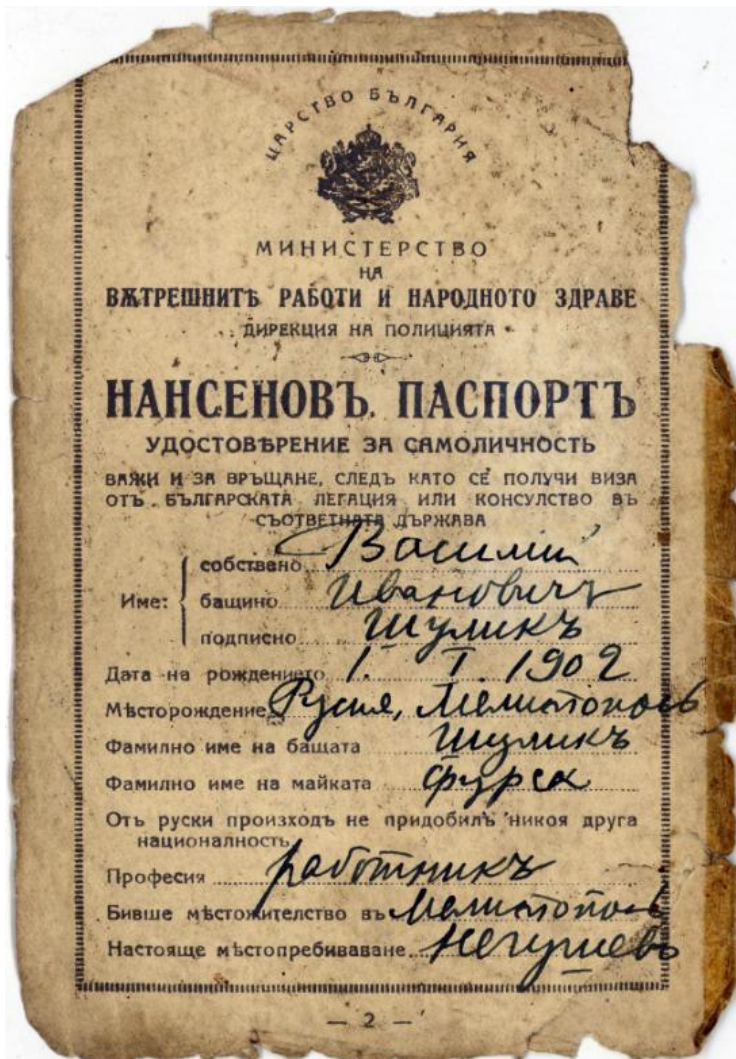 ЦАРСТВО БЪЛГАРИЯ
МИНИСТЕРСТВО
НА
ВѪТРЕШНИТѢ РАБОТИ И НАРОДНОТО ЗДРАВЕ
ДИРЕКЦИЯ НА ПОЛИЦИЯТА
НАНСЕНОВЪ ПАСПОРТЪ
УДОСТОВѢРЕНИЕ ЗА САМОЛИЧНОСТЬ
ВАЖИ И ЗА ВРЪЩАНЕ, СЛЕДЪ КАТО СЕ ПОЛУЧИ ВИЗА
ОТЪ БЪЛГАРСКАТА ЛЕГАЦИЯ ИЛИ КОНСУЛСТВО ВЪ
СЪОТВЕТНАТА ДЪРЖАВА
Име: собствено Василий
бащино Ивановичъ
подписно Шуликъ
Дата на рождението 1. I. 1902
Мѣсторождение Русия, Мелитополъ
Фамилно име на бащата Шуликъ
Фамилно име на майката Фурса
Отъ руски произходъ не придобилъ никоя друга
националность
Професия работникъ
Бивше мѣстожителство въ Мелитополъ
Настояще мѣстопребиваване Негушевъ
— 2 —